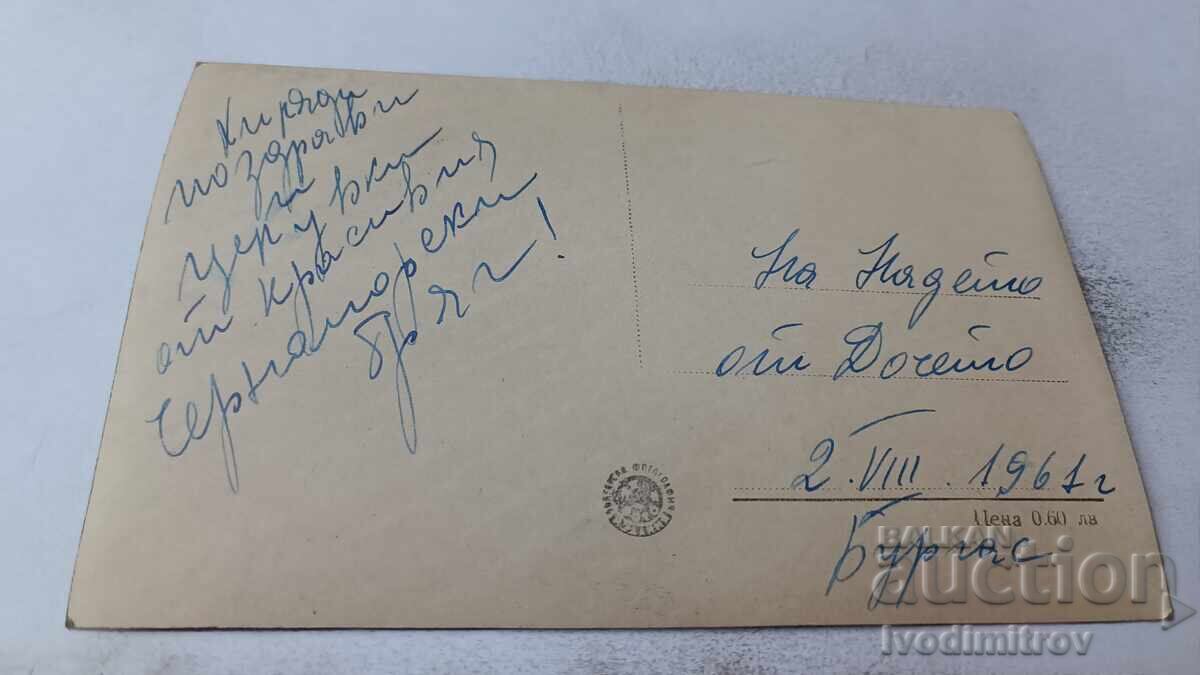 Хиряди
поздрави
и
церувки
от красивия
Черноморски
бряг!
На Надето
от Дочето
2. VIII. 1961 г
Цена 0.60 лв
Бургас.
BALKAN
auction
Ivodimitrov